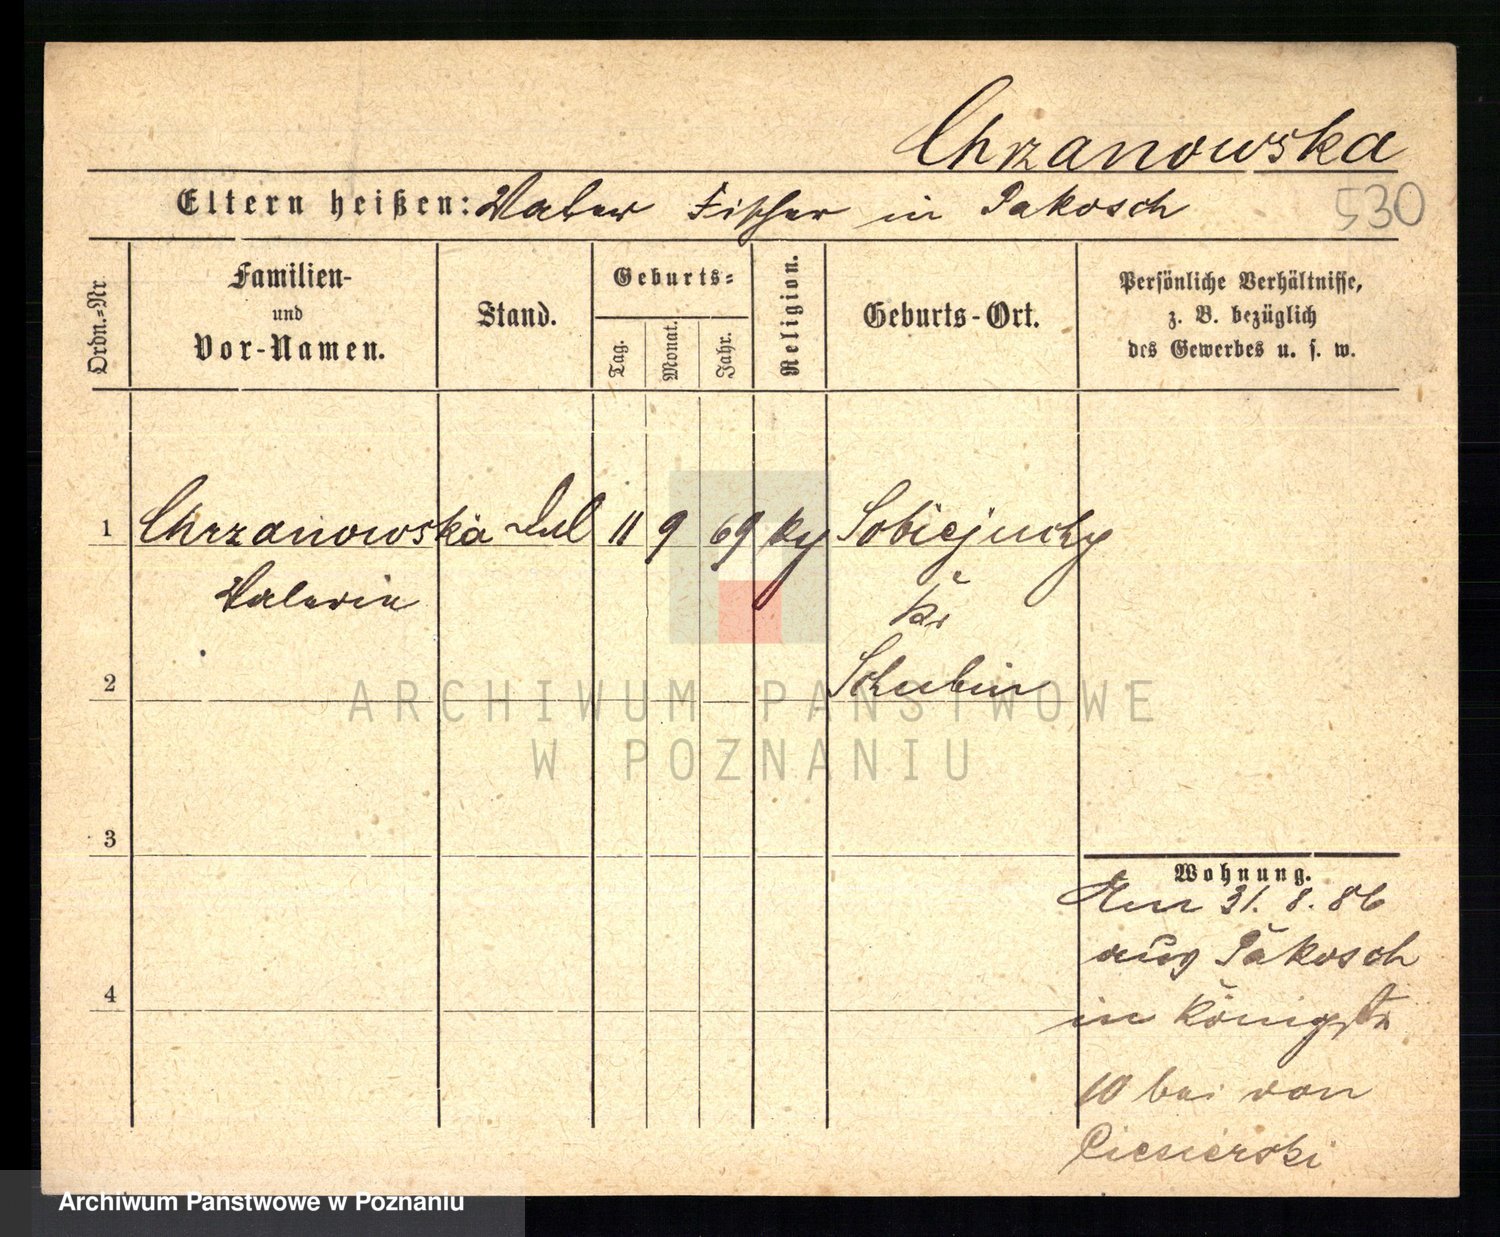 Chrzanowska
Eltern heißen: Vater Fischer in Pakosch
530
Ordn.-Nr.
Familien-
und
Vor-Namen.
Stand.
Geburts-
Tag.
Monat.
Jahr.
Religion.
Geburts-Ort.
Persönliche Verhältnisse,
z. B. bezüglich
des Gewerbes u. s. w.
1 Chrzanowska 11 9 69 Sobiejuchy
Valeria Kr
2 Schubin
ARCHIWUM PAŃSTWOWE
W POZNANIU
3
Wohnung.
31. 8. 86
aus Pakosch
4
in Königstr
10 bei von
Archiwum Państwowe w Poznaniu